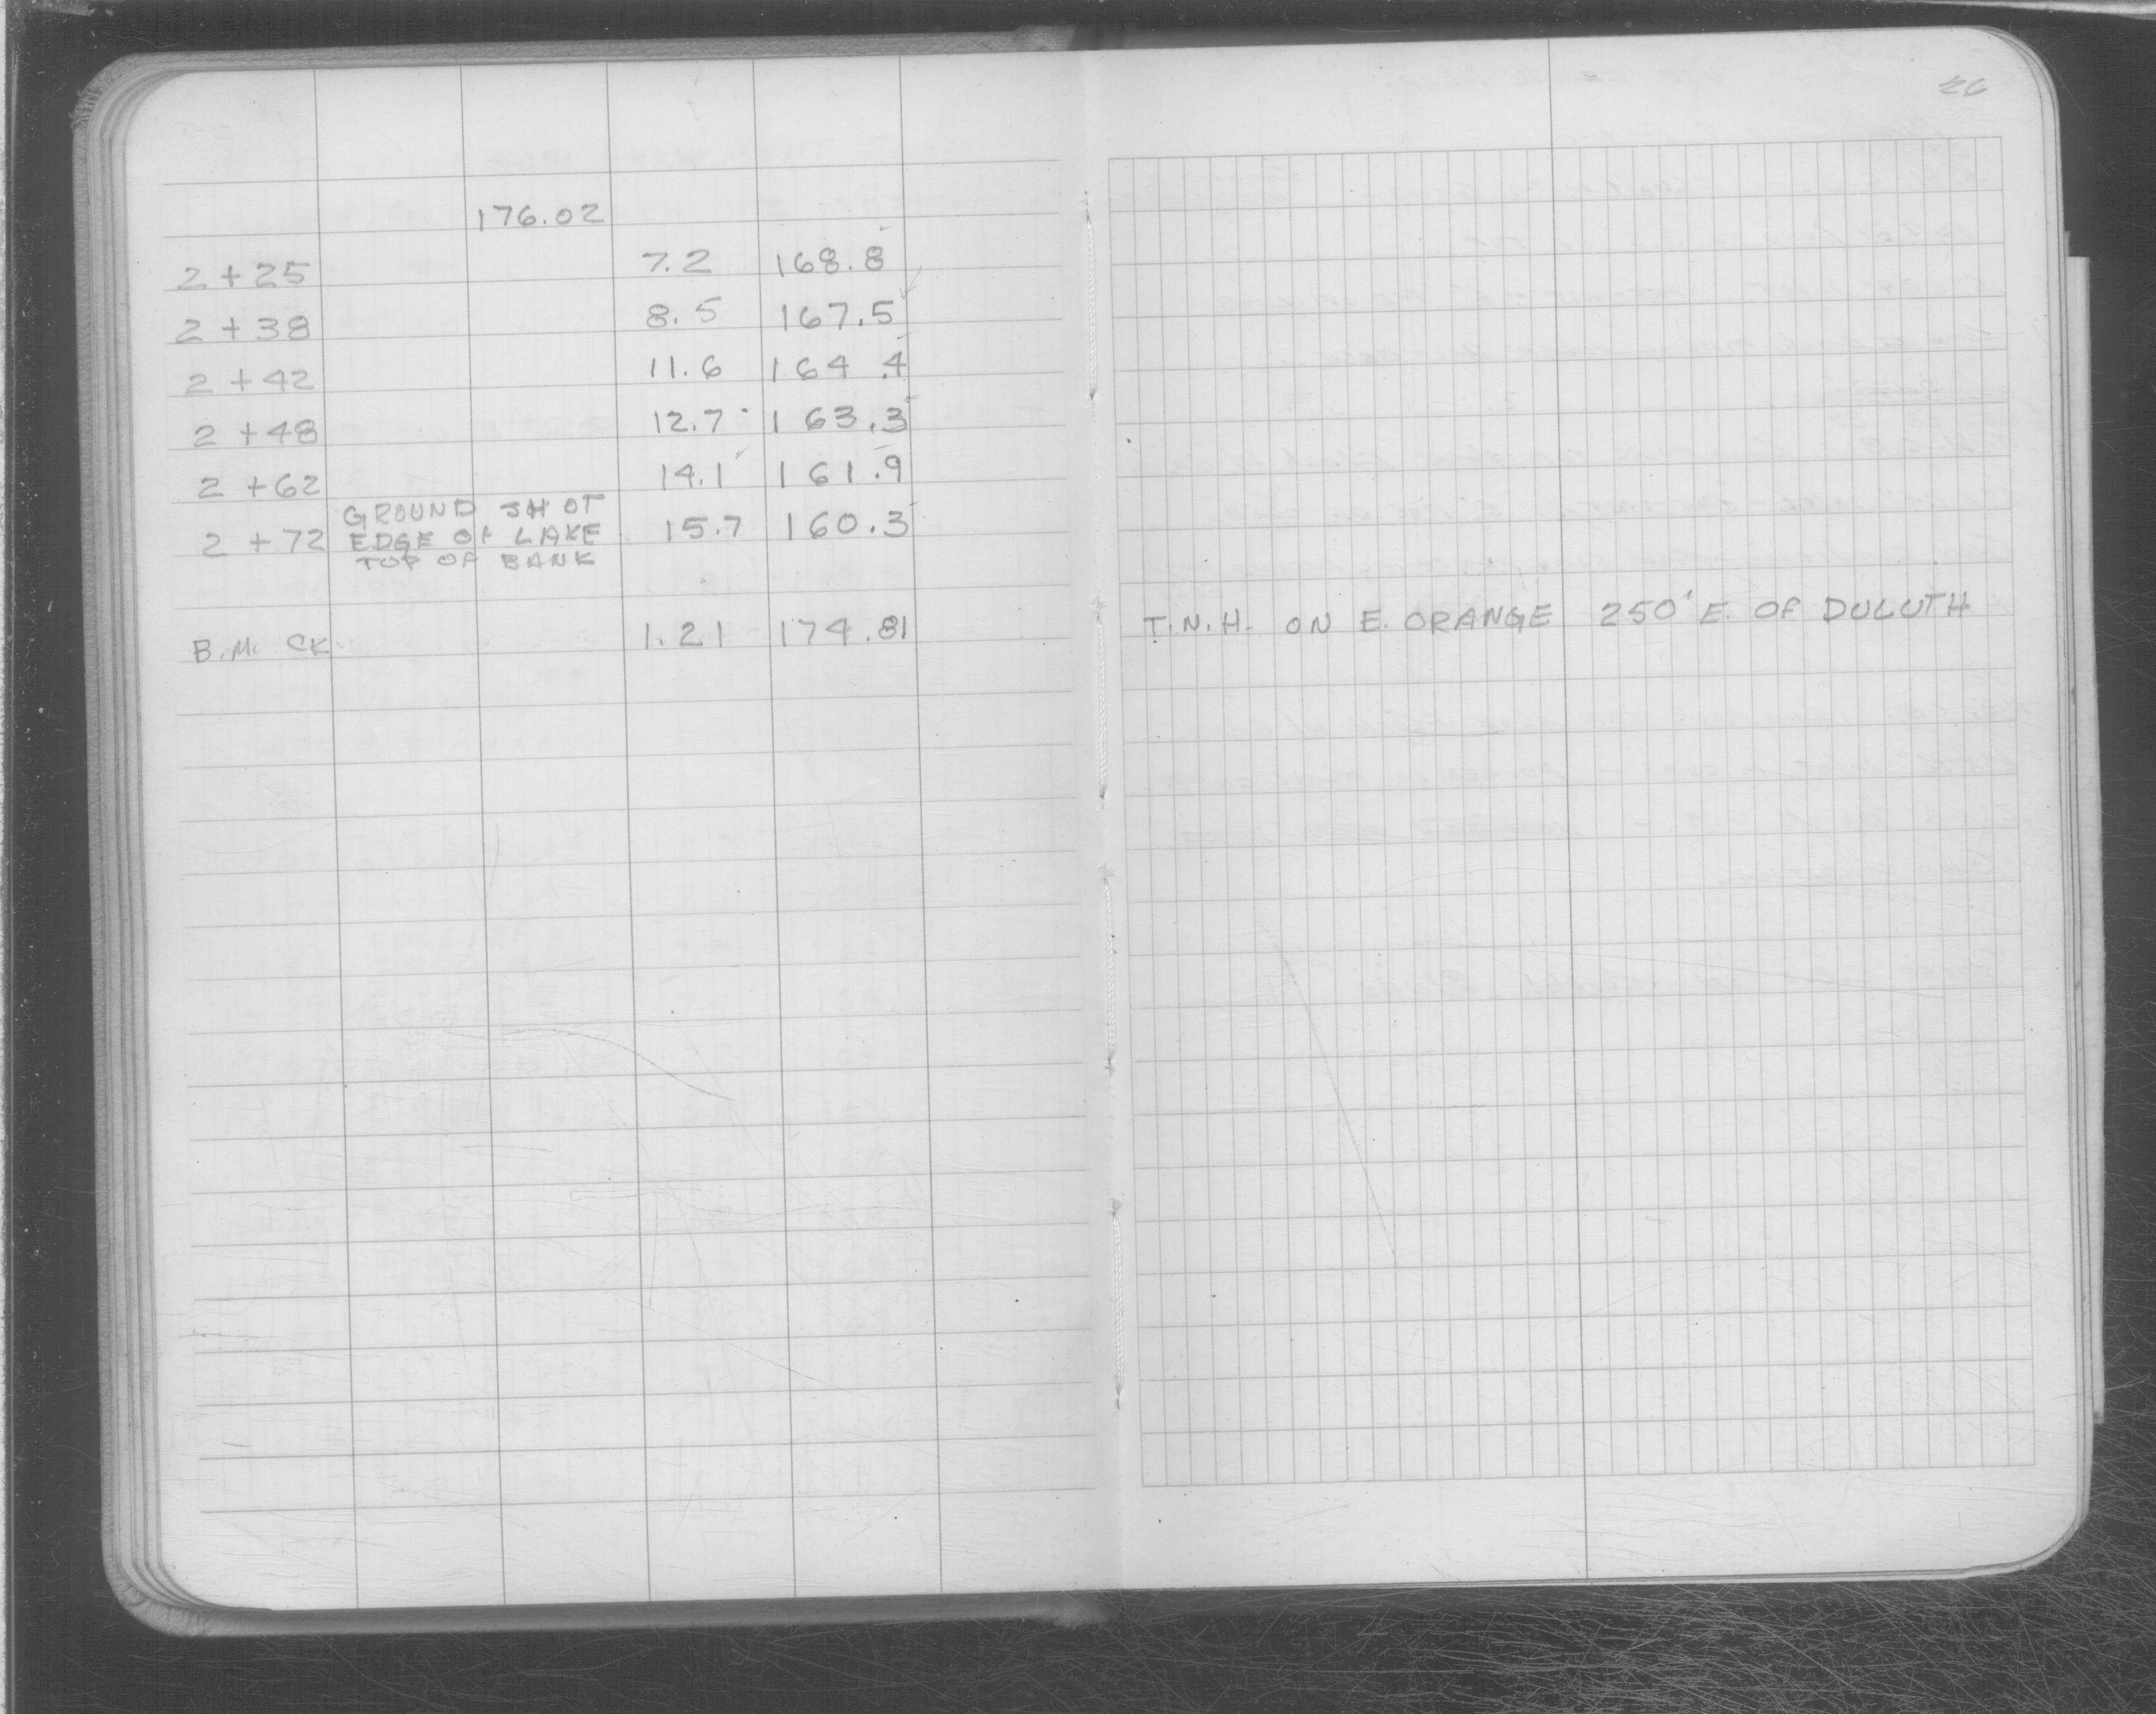 26
176.02
2+25 7.2 168.8
2+38 8.5 167.5
2+42 11.6 164.4
2+48 12.7 163.3
2+62 14.1 161.9
GROUND SHOT
2+72 EDGE OF LAKE 15.7 160.3
TOP OF BANK
B.M. CK. 1.21 174.81 T.N.H. ON E. ORANGE 250' E. OF DULUTH